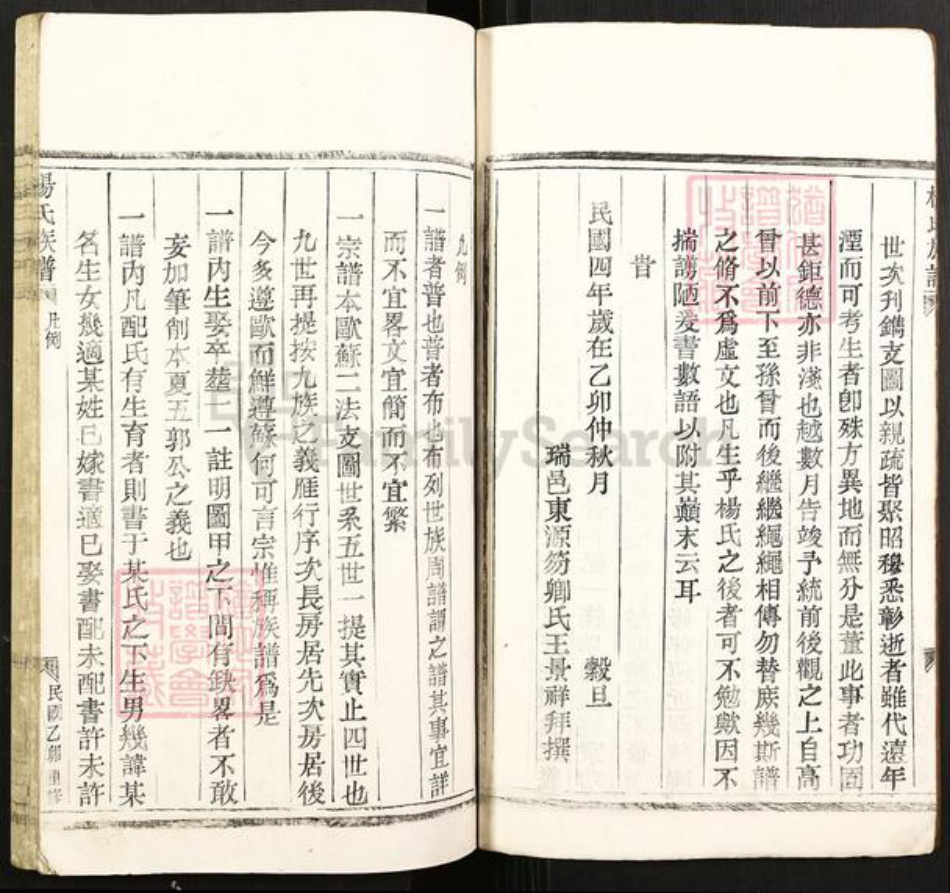 楊氏族譜
世次刋鐫支圖以親疏皆聚昭穆悉彰逝者雖代遠年
湮而可考生者卽殊方異地而無分是董此事者功固
甚鉅德亦非淺也越數月告竣予統前後觀之上自高
曾以前下至孫曾而後繼繼繩繩相傳勿替庻幾斯譜
之脩不爲虛文也凡生乎楊氏之後者可不勉歟因不
揣謭陋爰書數語以附其巔末云耳
旹
民國四年歲在乙卯仲秋月 穀旦
瑞邑東源笏卿氏王景祥拜撰
凡例
一譜者普也普者布也布列世族周譜謂之譜其事宜詳
而不宜畧文宜簡而不宜繁
一宗譜本歐蘇二法支圖世系五世一提其實止四世也
九世再提按九族之義雁行序次長房居先次房居後
今多遵歐而鮮遵蘇何可言宗惟稱族譜爲是
一譜内生娶卒塟一一註明圖甲之下間有缺畧者不敢
妄加筆削本夏五郭公之義也
一譜内凡配氏有生育者則書于某氏之下生男幾諱某
名生女幾適某姓已嫁書適已娶書配未配書許未許
楊氏族譜 凡例 民國乙卯重修
FamilySearch